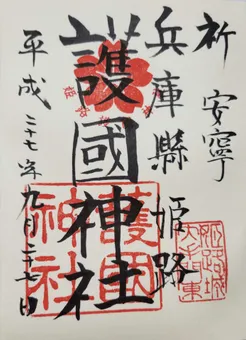 祈 安寧
兵庫縣 姫路
護國神社
平成二十七年九月二十七日
護國
神社
姫路城